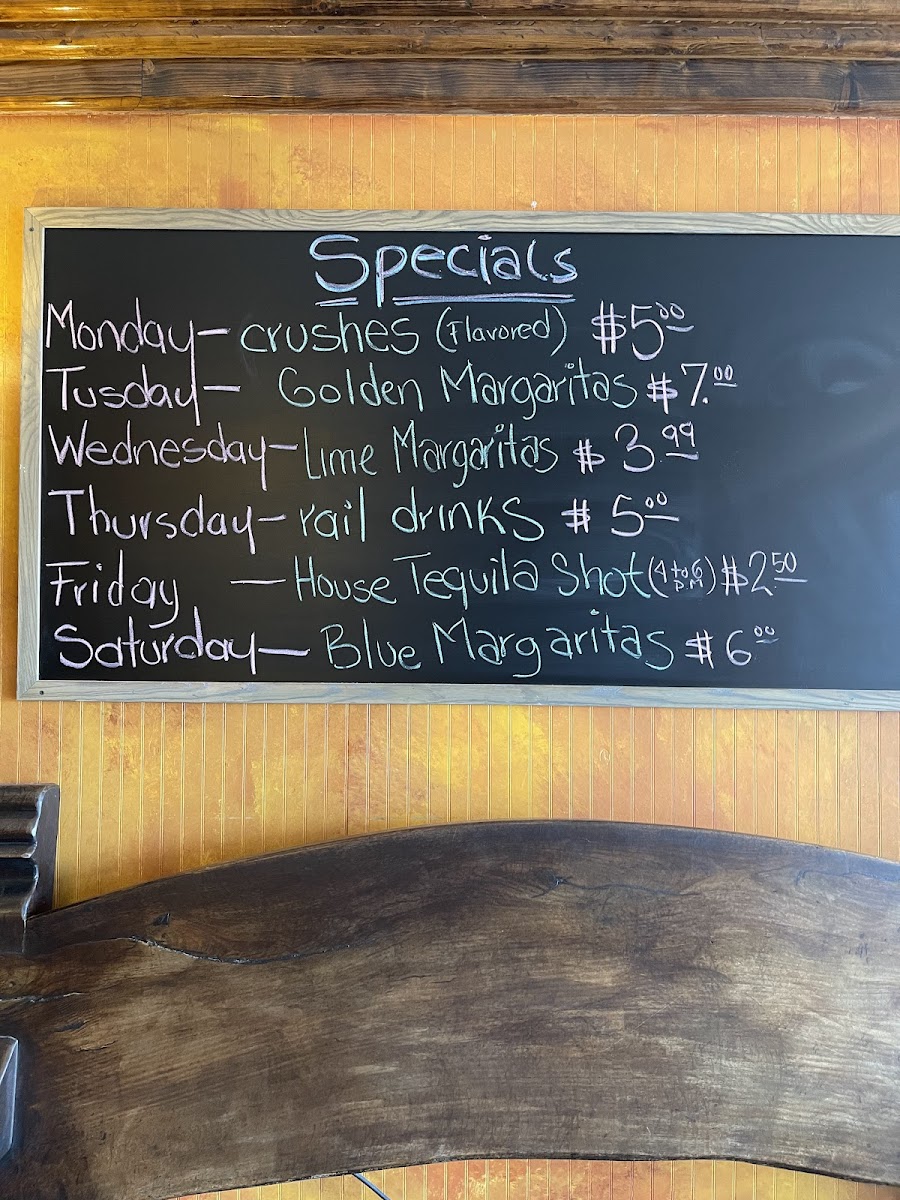 Specials
Monday- crushes (Flavored) $5.00
Tusday- Golden Margaritas $7.00
Wednesday- Lime Margaritas $3.99
Thursday- rail drinks $5.00
Friday - House Tequila Shot (4 to 6 P.M) $2.50
Saturday- Blue Margaritas $6.00